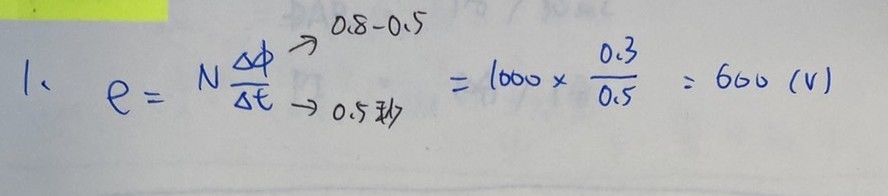 1、 e = N Δϕ/Δt → 0.8-0.5 → 0.5秒 = 1000 × 0.3/0.5 = 600 (V)